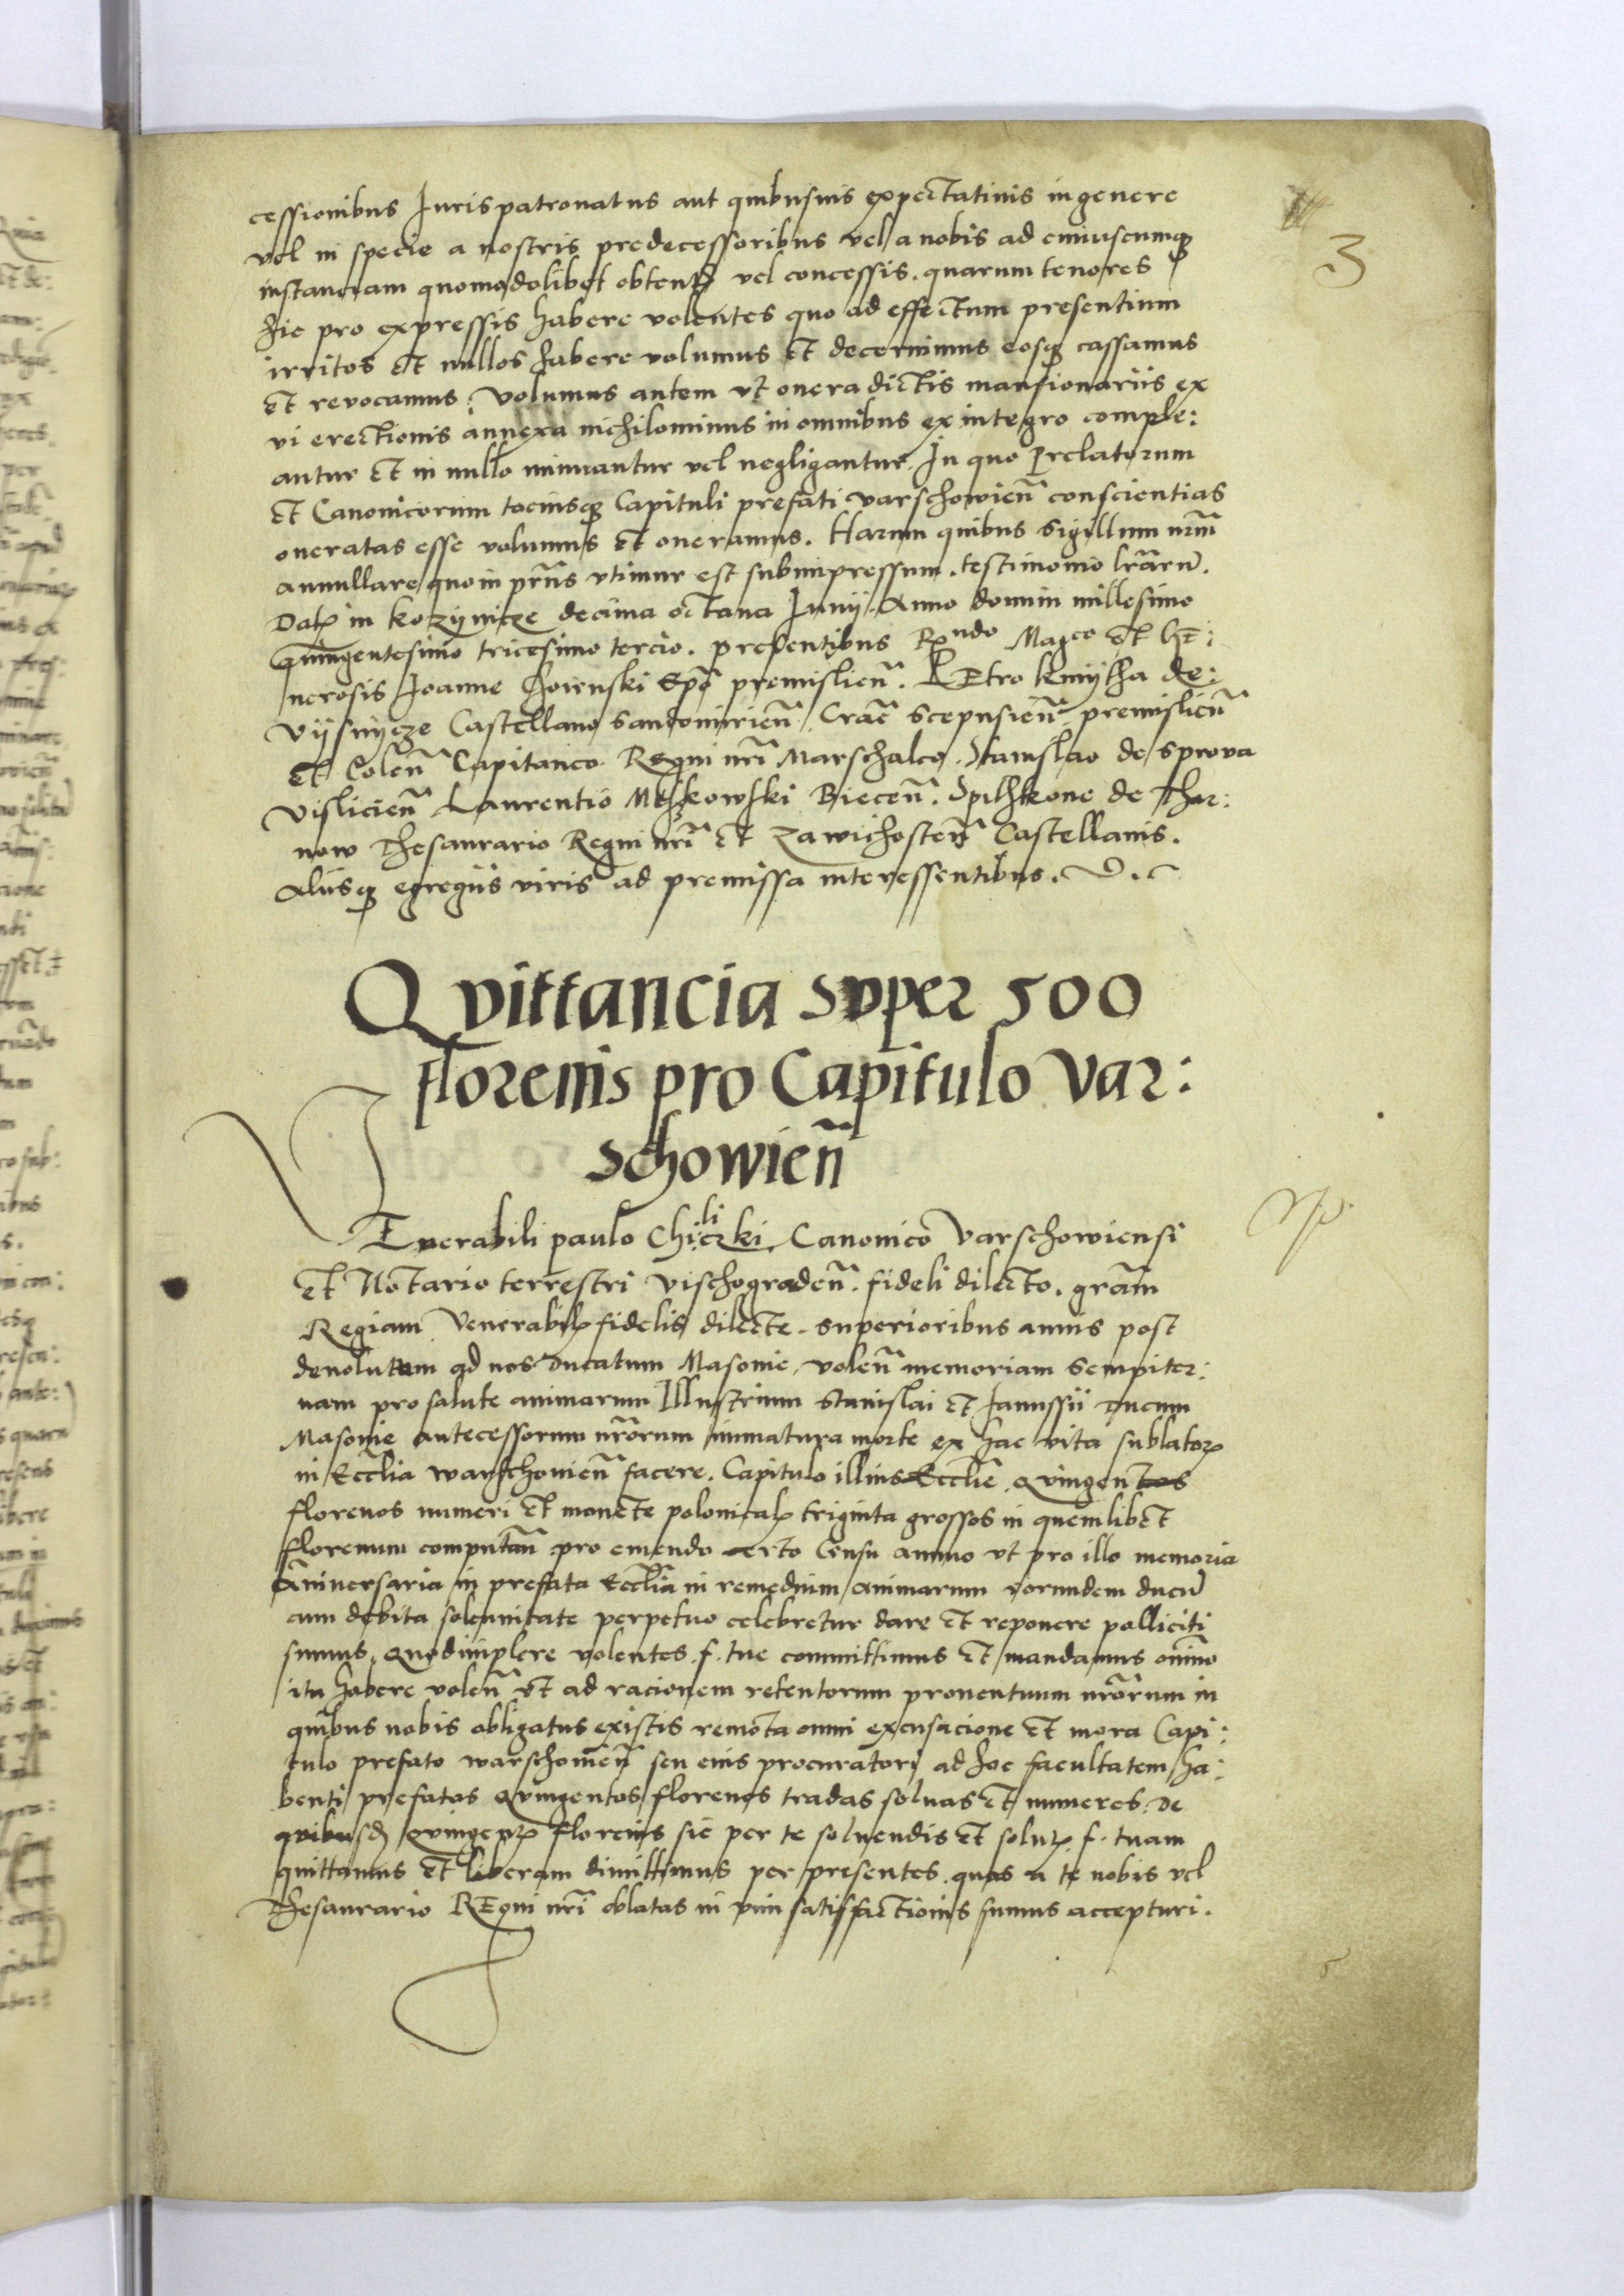 3
cessionibus Iurispatronatus aut quibusuis expectatiuis in genere
vel in specie a nostris predecessoribus vel a nobis ad cuiuscumqꝫ
instanciam quomodolibet obtentꝭ vel concessis. quarum tenores
hic pro expressis habere volentes quo ad effectum presentium
irritos et nullos habere volumus et decernimus eosqꝫ cassamus
et revocamus. Volumus autem vt onera dictis mansionariis ex
vi erectionis annexa nichilominus in omnibus ex integro comple:
antur et in nullo minuantur vel negligantur. In quo Prelatorum
et Canonicorum tociusqꝫ Capituli prefati varschowien̄ conscientias
oneratas esse volumus et oneramus. Harum quibus Sigillum nr̄m
annullare quo in prn̄s vtimur est subimpressum. testimonio lr̄arum̄.
Datꝭ in kozijnicze decima octaua Iunij. Anno domini millesimo
Quingentesimo tricesimo tercio. presentibus Rꝫndo Mag̃co et Ge:
nerosis Joanne Choienski Ep̄o premislien̄. PEtro kmijtha de:
vijsnijcze Castellano sandomirien̄ Crac̄ scepusien̄ premislien̄
et Colen̄ Capitaneo Regni nr̄i Marschalco. Stanislao de Sprova
vislicien̄ Laurentio Mijskowski Biecen̄. Spithkone de Thar:
now Thesaurario Regni nr̄i et Zawichosten̄ Castellanis.
Aliisqꝫ egregiis viris ad premissa interessentibus.
Qvittancia svper 500
florenis pro Capitulo Var:
schowien̄
VEnerabili paulo Chiliczki. Canonico Varschowiensi
et Notario terrestri vischograden̄. fideli dilecto. gr̄am
Regiam. Venerabilꝭ fidelis dilecte. superioribus annis post
deuolutum ad nos Ducatum Masouie. volen̄ memoriam sempiter:
nam pro salute animarum Illustrium Stanislai et Janussii Ducum
Masouie antecessorum nr̄orum immatura morte ex hac vita sublatoꝝ
in Eccl̄ia warschouien̄ facere. Capitulo illius Eccl̄ie. Quingentos
florenos numeri et monete polonicalꝭ triginta grossos in quemlibet
florenum computan̄ pro emendo certo Censu annuo vt pro illo memoria
Aniuersaria in prefata Eccl̄ia in remedium animarum eorundem ducum̄
cum debita solennitate perpetuo celebretur dare et reponere polliciti
sumus. Quod implere volentes. f. tue committimus et mandamus om̄ino
ita habere volen̄ vt ad racionem retentorum prouentuum nr̄orum in
quibus nobis obligatus existis remota omni excusacione et mora Capi:
tulo prefato warschouien̄ seu eius procuratori ad hoc facultatem ha:
benti prefatos Quingentos florenos tradas soluas et numeres. De
quibusdꝫ Quingentꝭ florenis sic per te soluendis et solutꝭ f. tuam
quittamus et liberam dimittimus per presentes. quas a te nobis vel
Thesaurario REgni nr̄i oblatas in vim satisfactionis sumus accepturi.